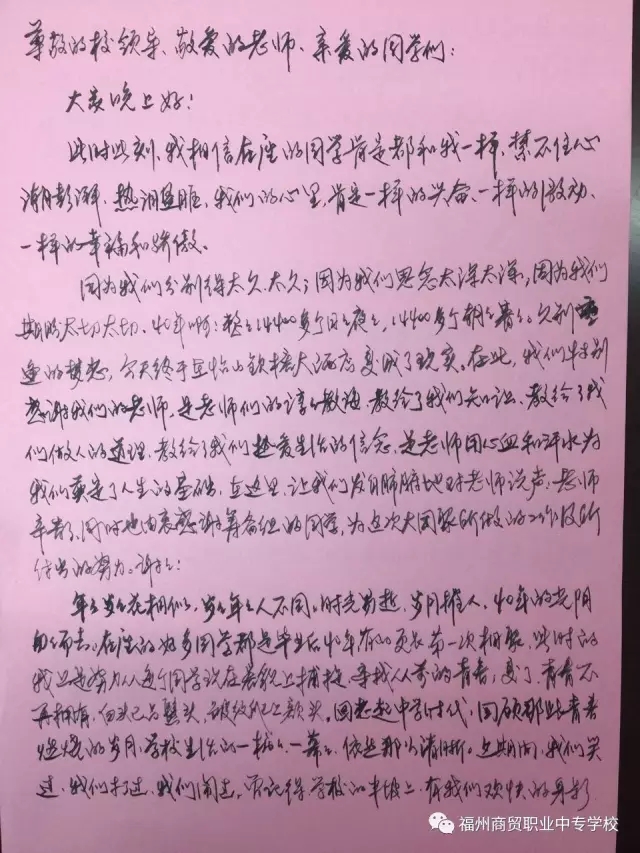 尊敬的校领导、敬爱的老师、亲爱的同学们：
大家晚上好！
此时此刻，我相信在座的同学肯定都和我一样，禁不住心
潮澎湃，热泪盈眶，我们的心里，肯定一样的兴奋、一样的激动、
一样的幸福和骄傲、
因为我们分别得太久太久；因为我们思念太深太深，因为我们
期盼太切太切、40年啊；整整14400多个日日夜夜，14400多个朝朝暮暮，久别重
逢的梦想，今天终于在怡山铁楼大酒店变成了现实。在此，我们特别
感谢我们的老师，是老师们的谆谆教诲教给了我们知识、教给了我
们做人的道理，教给了我们热爱生活的信念，是老师用心血和汗水为
我们奠定了人生的基础，在这里，让我们发自肺腑地对老师说声：老师
辛苦了，同时也由衷感谢筹备组的同学，为这次大团聚所做的工作及所
付出的努力。谢谢：
年年岁岁花相似，岁岁年年人不同。时光易逝，岁月摧人，40年的光阴
匆匆而去。在座的好多同学都是毕业后40年有的更长第一次相聚，此时的
我只是努力从每个同学现在容貌上捕捉、寻找从前的青春，变了，青春不
再拥有，白头已占鬓头，皱纹爬上额头。回想起中学时代，回顾那些青春
燃烧的岁月，学校生活的一桩桩、一幕幕、依然那么清晰。这期间，我们笑
过，我们打过，我们闹过，曾记得学校的半坡上，有我们欢快的身影
福州商贸职业中专学校